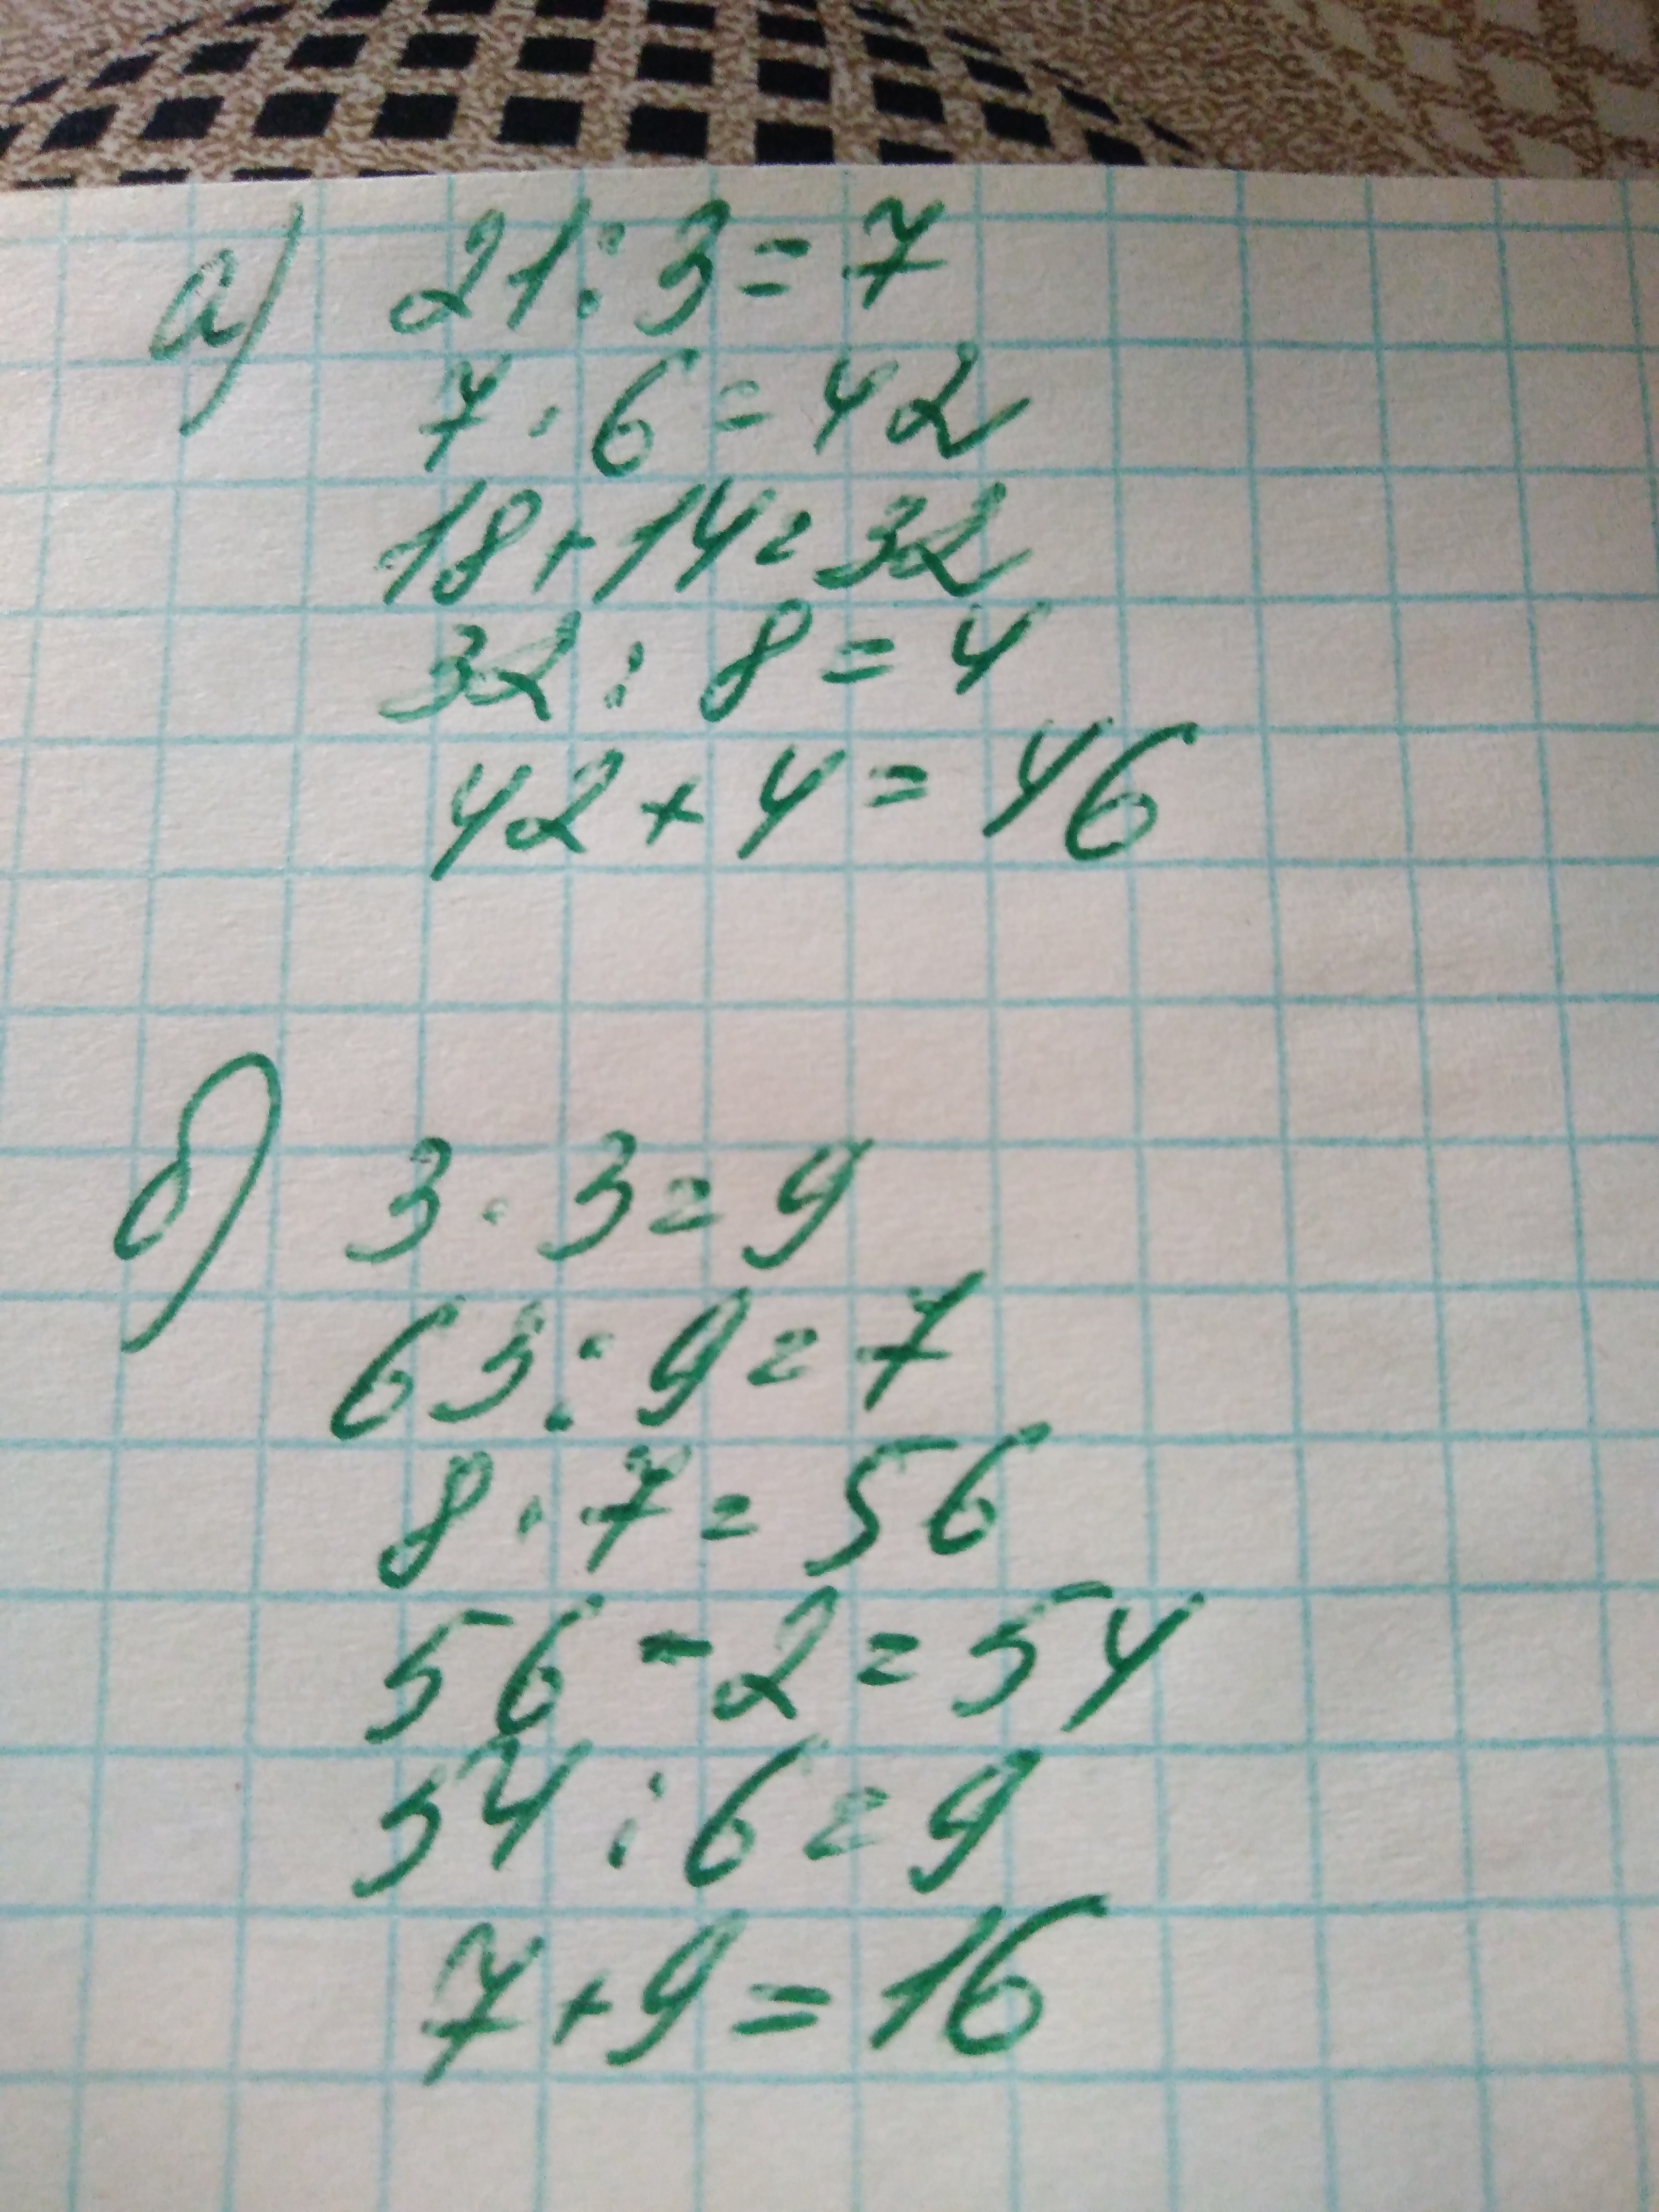 а) 21 : 3 = 7
7 · 6 = 42
18 + 14 = 32
32 : 8 = 4
42 + 4 = 46
б) 3 · 3 = 9
63 : 9 = 7
8 · 7 = 56
56 - 2 = 54
54 : 6 = 9
7 + 9 = 16